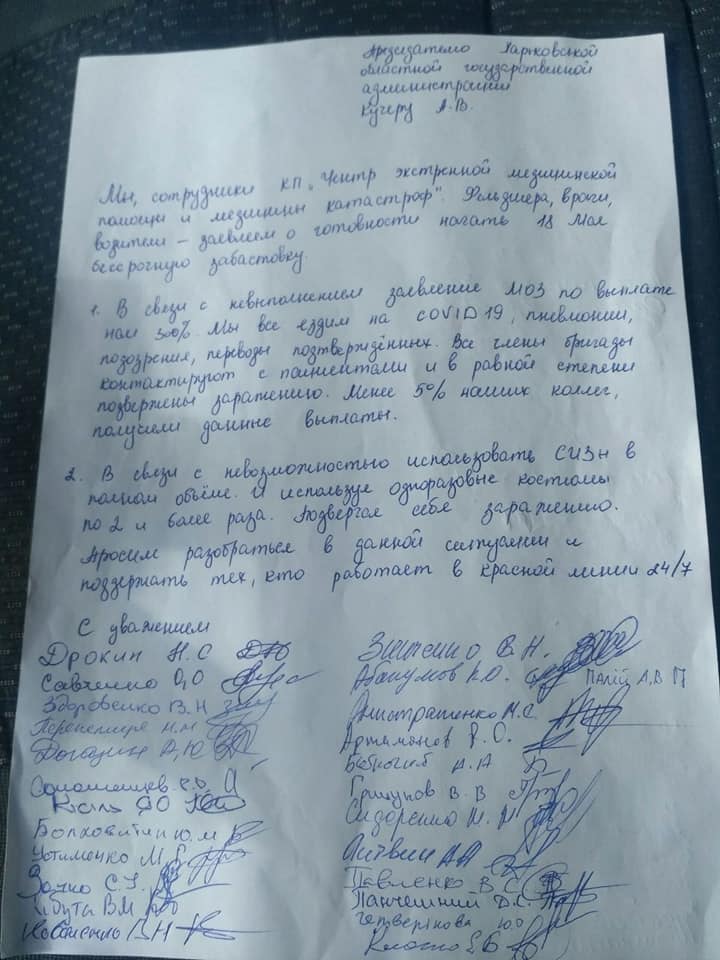 Председателю Харковской
областной государственной
администрации
Кучеру А.В.
Мы, сотрудники КП „Центр экстренной медицинской
помощи и медицины катастроф". Фельдшера, врачи,
водители – заявляем о готовности начать 18 Мая
бессрочную забастовку.
1. В связи с невыполнением заявление МОЗ по выплате
нам 300%. Мы все ездим на COVID19, пневмонии,
подозрения, переводы подтверждённых. Все члены бригады
контактируют с пациентами и в равной степени
подвержены заражению. Менее 5% наших коллег,
получили данные выплаты.
2. В связи с невозможностью использовать СИЗы в
полном объёме. И используя одноразовые костюмы
по 2 и более раза. Подвергая себя заражению.
Просим разобраться в данной ситуации и
поддержать тех, кто работает в красной линии 24/7
С уважением
Дрокин Н.С
Савченко О,О
Здоровенко В.Н
А,Ю
Болховитин Ю.М
Устименко М.
С.
В.М
В Н
В.Н.
Абакумов К.О. Палій А,В
М.С.
Артимонов О.
А.А
Грицунов В.В
Сидоренко
Литвин А А
Павленко В С
Панчешний Д.С.
Четверікова Ю.О